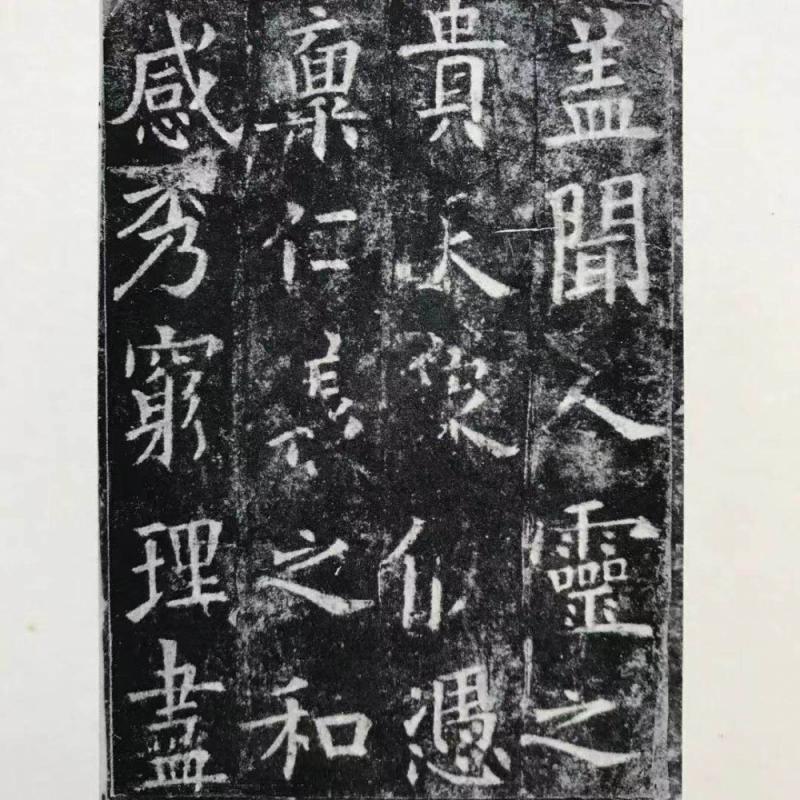 盖聞人靈之
貴天憑
稟仁之和
感秀窮理盡